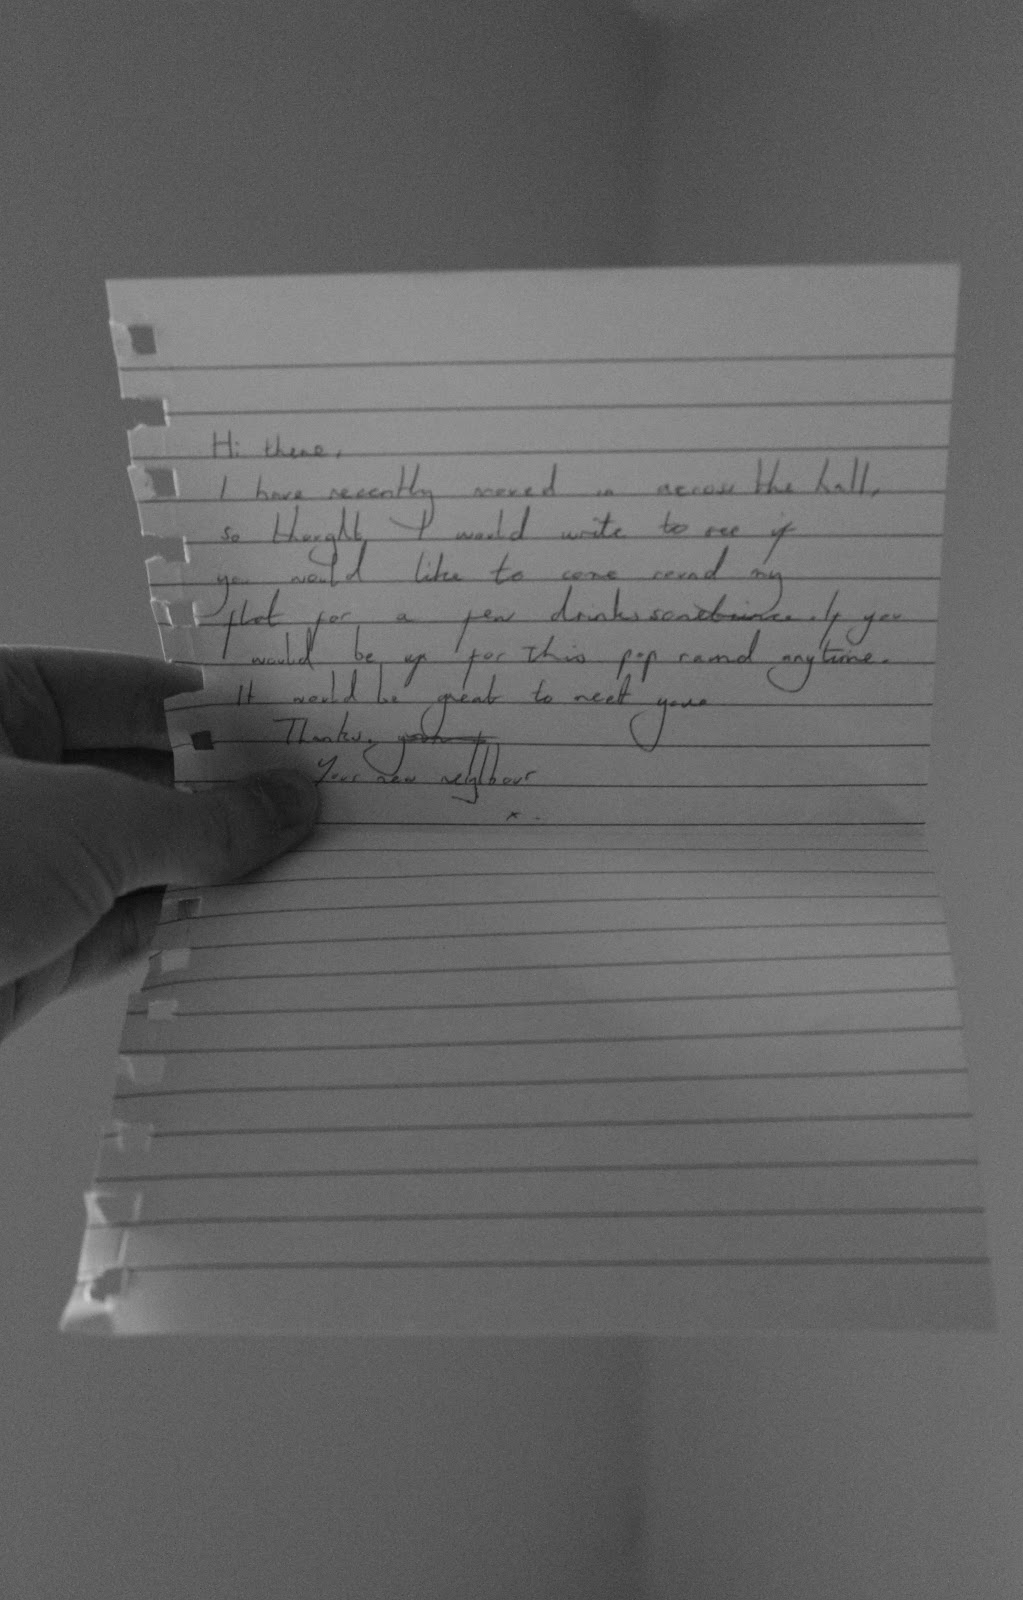 Hi there,
I have recently moved in across the hall,
so thought I would write to see if
you would like to come round my
flat for a few drinks sometime. If you
would be up for this pop round anytime.
It would be great to meet you.
Thanks,
Your new neighbour
x.